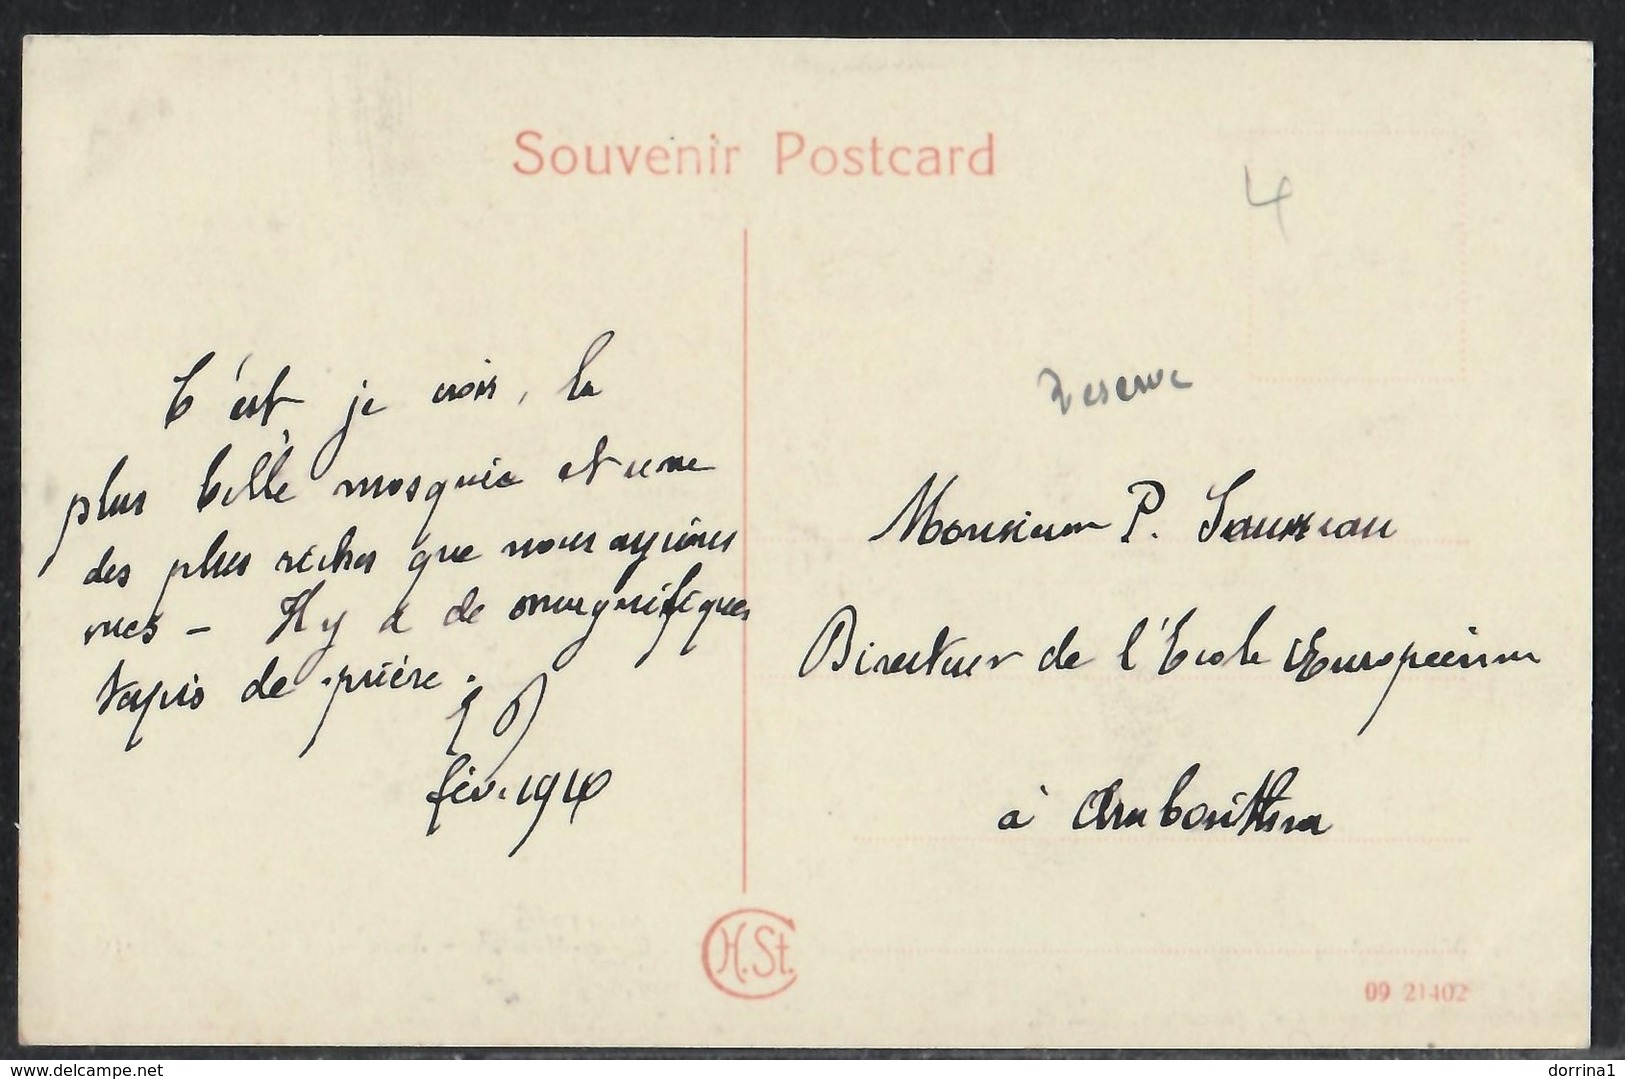 Souvenir Postcard
4
C'est je crois, la
plus belle mosquée et une
des plus riches que nous ayions
vues - Il y a de magnifiques
tapis de prière.
fév. 1910
Reserve
Monsieur P.
Directeur de l'Ecole Européenne
à Ambositra
H.St.
09 21402
www.delcampe.net
dorrina1